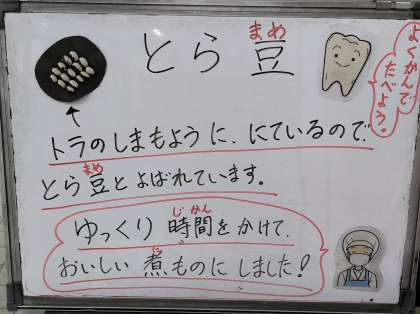 とら豆
まめ
よくかんで
たべよう。
トラのしまもように、にているので
とら豆とよばれています。
まめ
ゆっくり時間をかけて、
じかん
おいしい煮ものにしました!
に